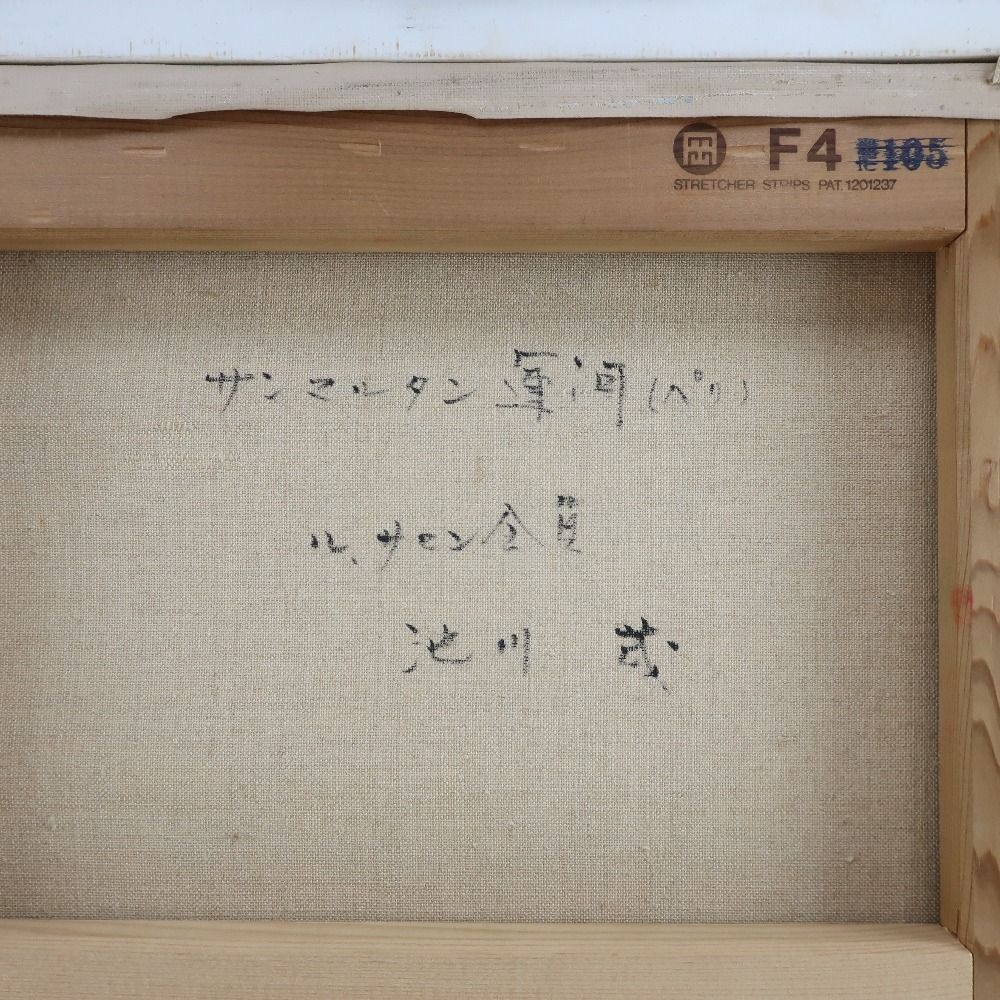 F4
STRETCHER STRIPS PAT. 1201237
サンマルタン運河(パリ)
ル、サロン会員
池川 茂